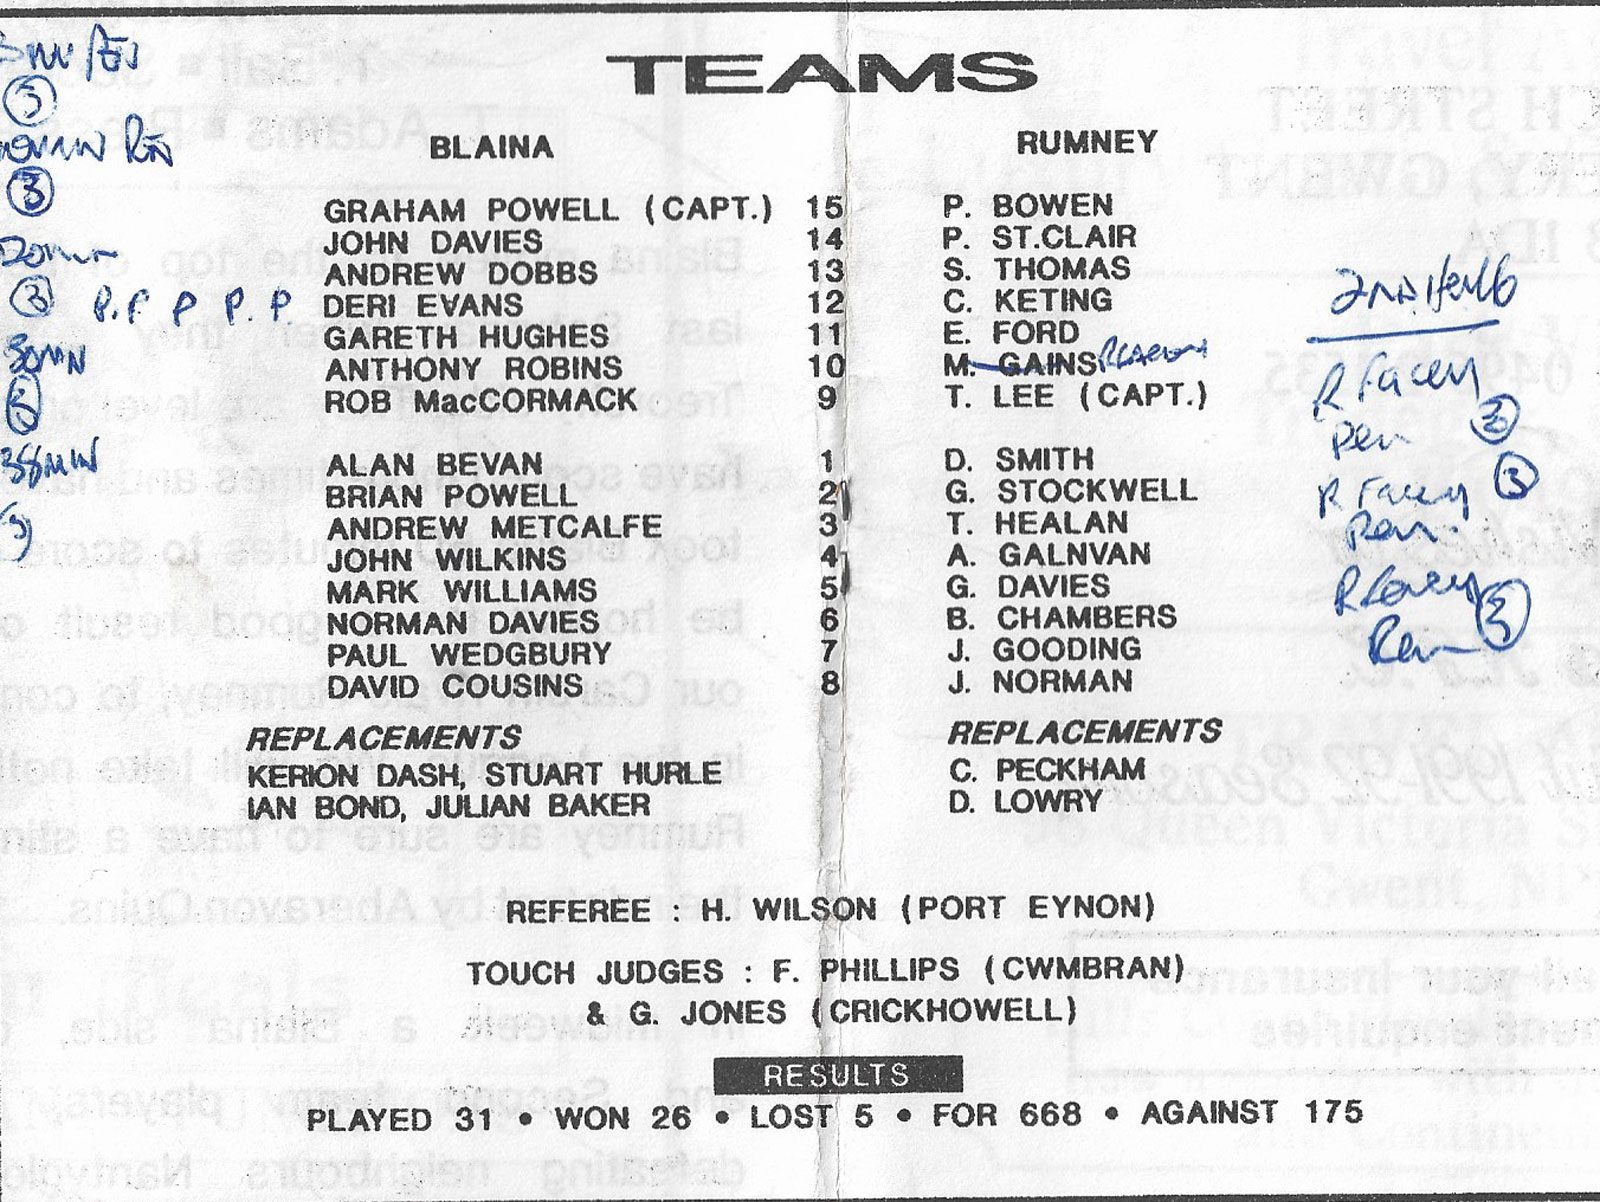 TEAMS
BLAINA RUMNEY
GRAHAM POWELL (CAPT.) 15 P. BOWEN
JOHN DAVIES 14 P. ST.CLAIR
ANDREW DOBBS 13 S. THOMAS
P.P P P.P DERI EVANS 12 C. KETING
GARETH HUGHES 11 E. FORD
ANTHONY ROBINS 10 M. GAINS
ROB MacCORMACK 9 T. LEE (CAPT.)
ALAN BEVAN 1 D. SMITH
BRIAN POWELL 2 G. STOCKWELL
ANDREW METCALFE 3 T. HEALAN
JOHN WILKINS 4 A. GALNVAN
MARK WILLIAMS 5 G. DAVIES
NORMAN DAVIES 6 B. CHAMBERS
PAUL WEDGBURY 7 J. GOODING
DAVID COUSINS 8 J. NORMAN
REPLACEMENTS REPLACEMENTS
KERION DASH, STUART HURLE C. PECKHAM
IAN BOND, JULIAN BAKER D. LOWRY
REFEREE : H. WILSON (PORT EYNON)
TOUCH JUDGES : F. PHILLIPS (CWMBRAN)
& G. JONES (CRICKHOWELL)
RESULTS
PLAYED 31 • WON 26 • LOST 5 • FOR 668 • AGAINST 175
3
20min
3
30MIN
38MIN
3
2nd Half
R Facey
Pen 3
R Facey 3
Pen.
R Facey
Pen 3